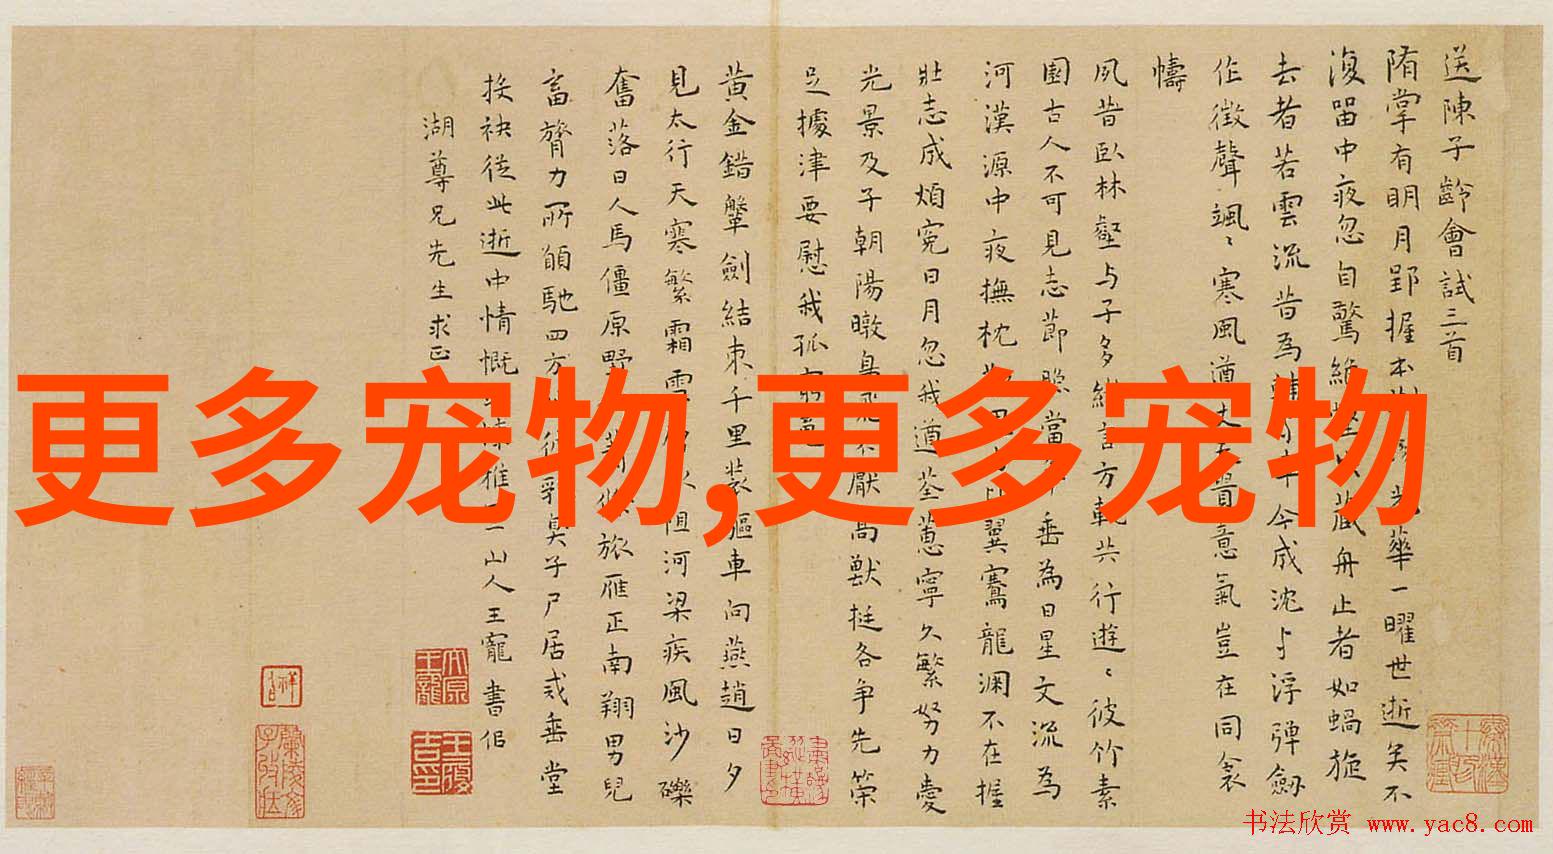 送陳子齡會試三首
隋掌有明月郢握本光華一曜世逝矣不
復留中夜忽自驚絕壑以藏舟止者如蝸旋
去者若雲流昔為今成沈与浮彈劔
作徵聲颯〻寒風遒丈夫貴意氣豈在同衾
幬
夙昔臥林壑与子多言方軌共行遊〻彼竹素
園古人不可見志節照當垂為日星文流為
河漢源中夜撫枕翼騫龍淵不在握
壯志成煩寃日月忽我遒荃蕙寧久繁努力愛
光景及子朝陽暾飛不厭高獸挺各爭先策
足據津要慰我孤
黃金錯鞶劍結束千里裝驅車向燕趙日夕
見太行天寒繁霜雪阻河梁疾風沙礫
奮落日人馬僵原野旅雁正南翔男兒
畜膂力所願馳四方乳臭子尸居或垂堂
接袂從此逝中情慨雅宜山人王寵書侣
湖尊兄先生求正
更多宠物,更多宠物
书法欣赏 www.yac8.com